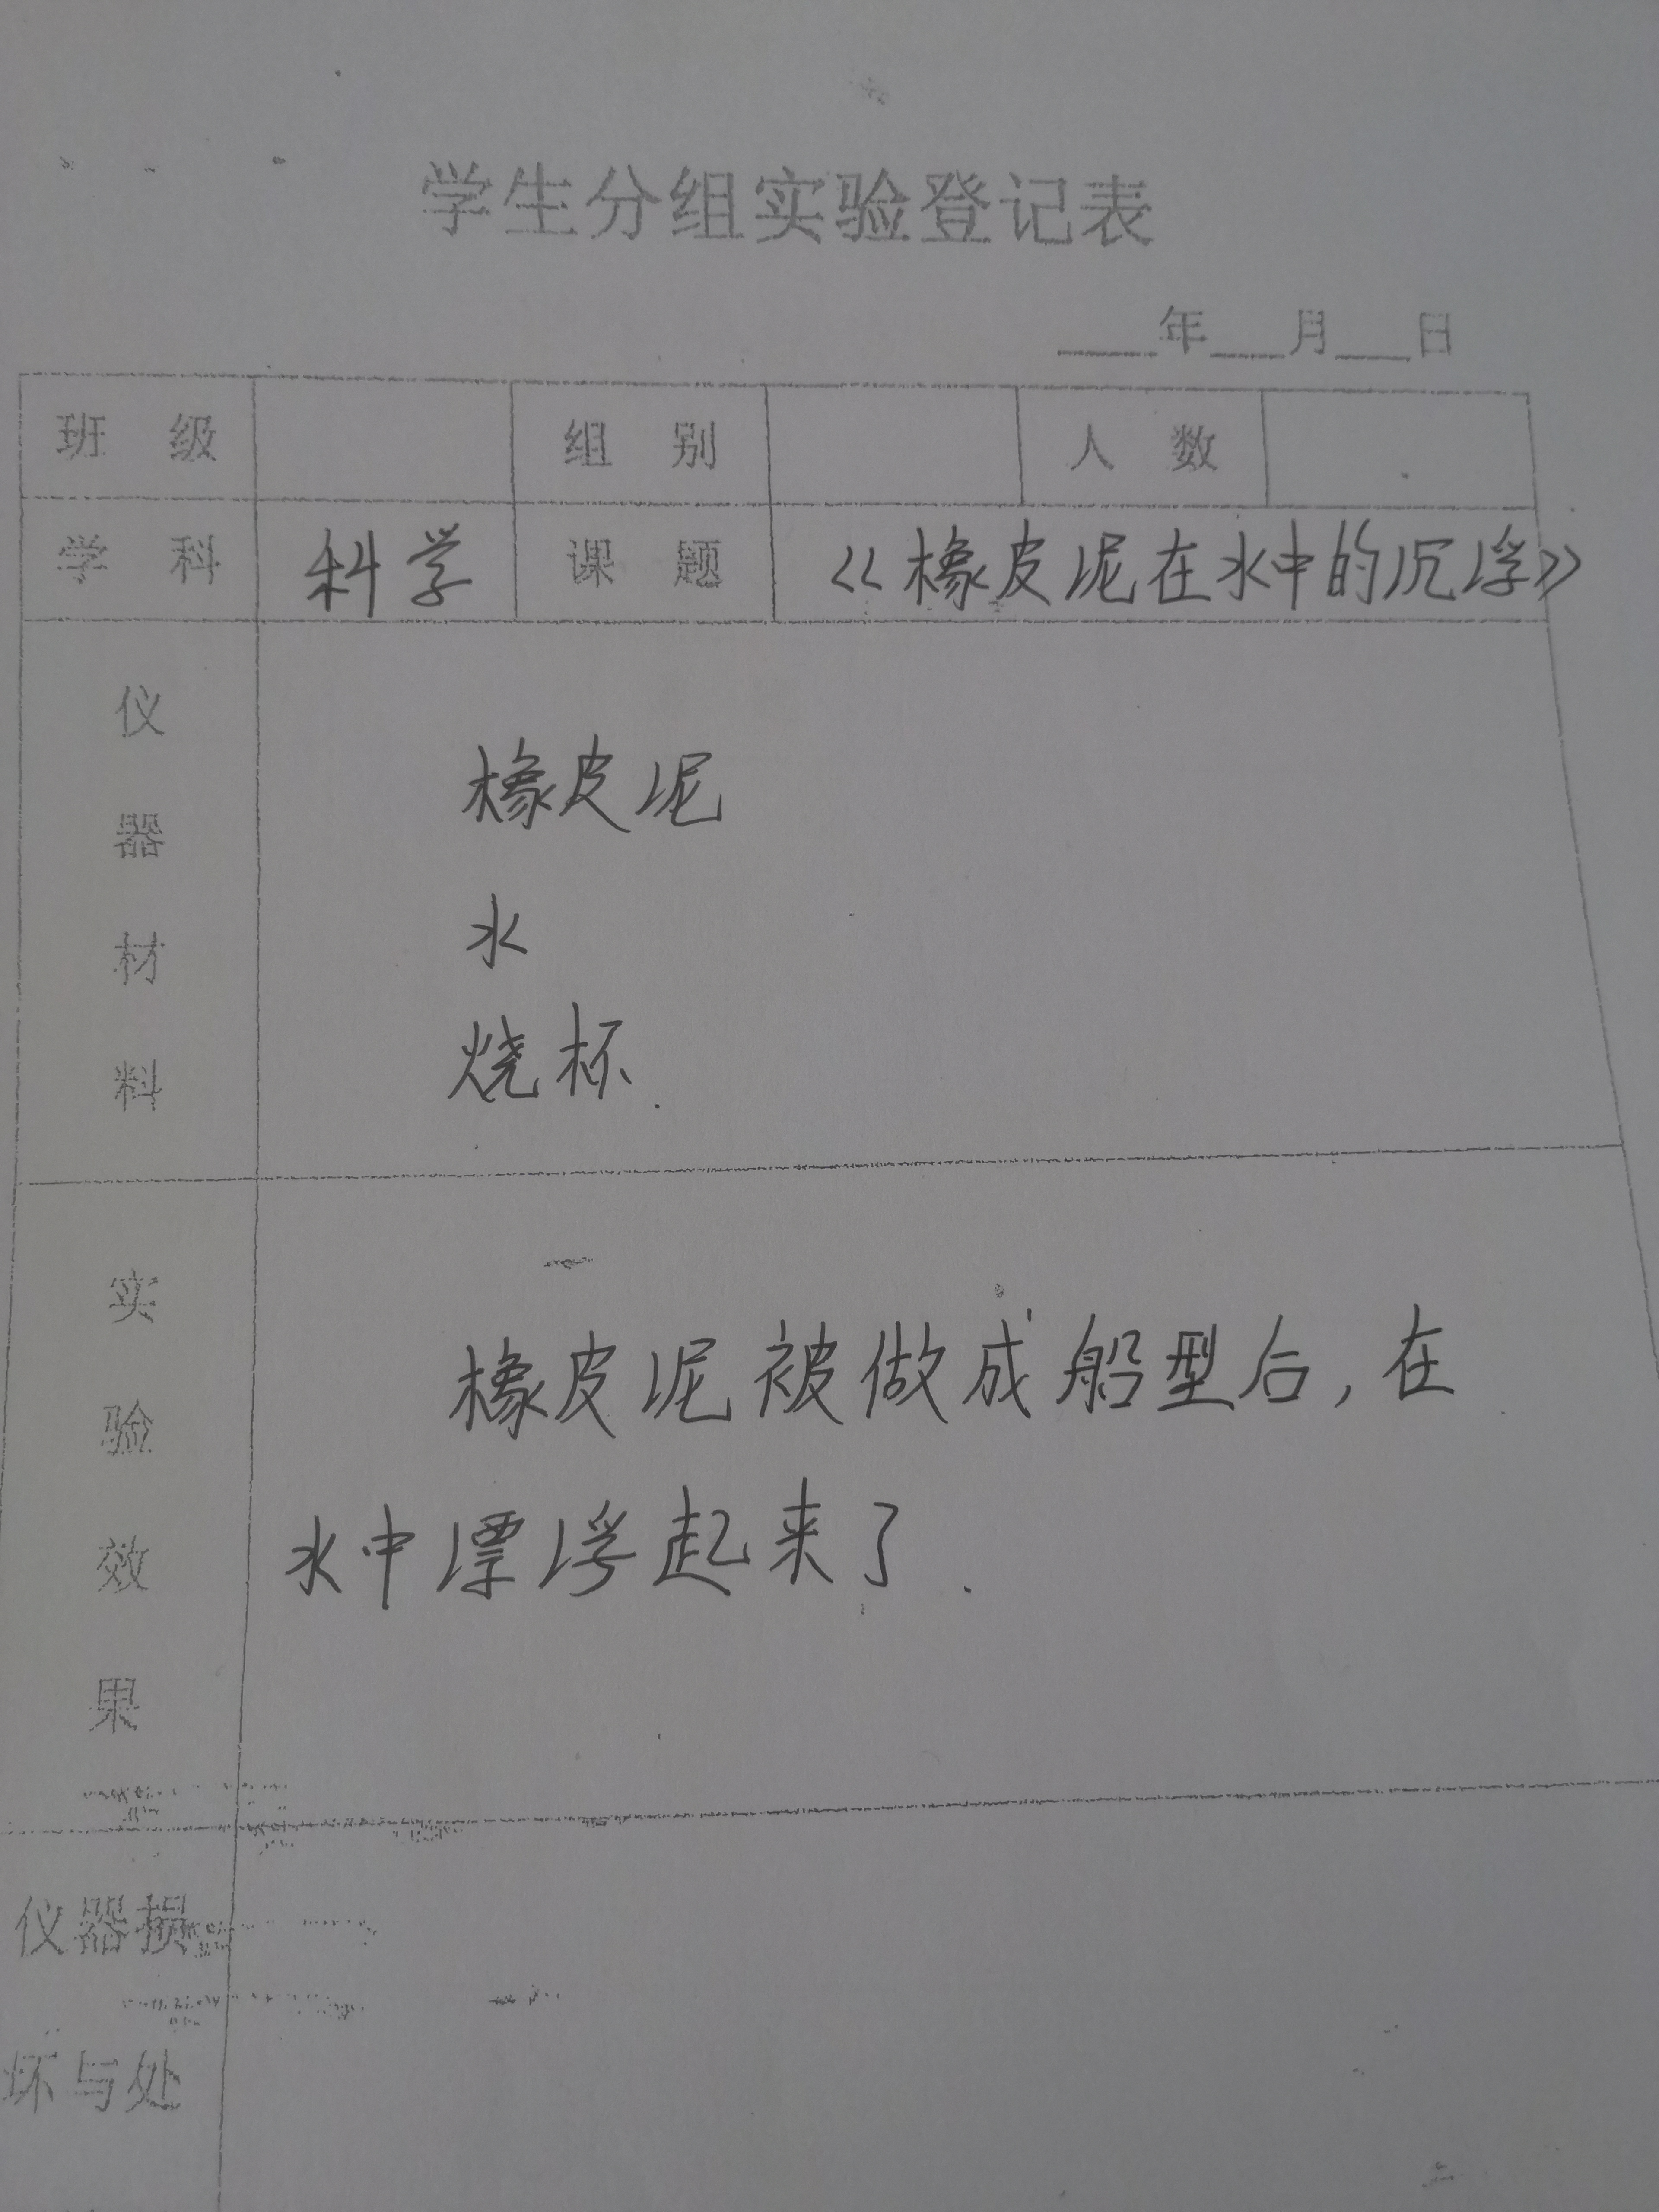 学生分组实验登记表
____年___月___日
班 级 组 别 人 数
学 科 科学 课 题 《橡皮泥在水中的沉浮》
仪器材料
橡皮泥
水
烧杯.
实验效果
橡皮泥被做成船型后,在
水中漂浮起来了.
仪器损
坏与处